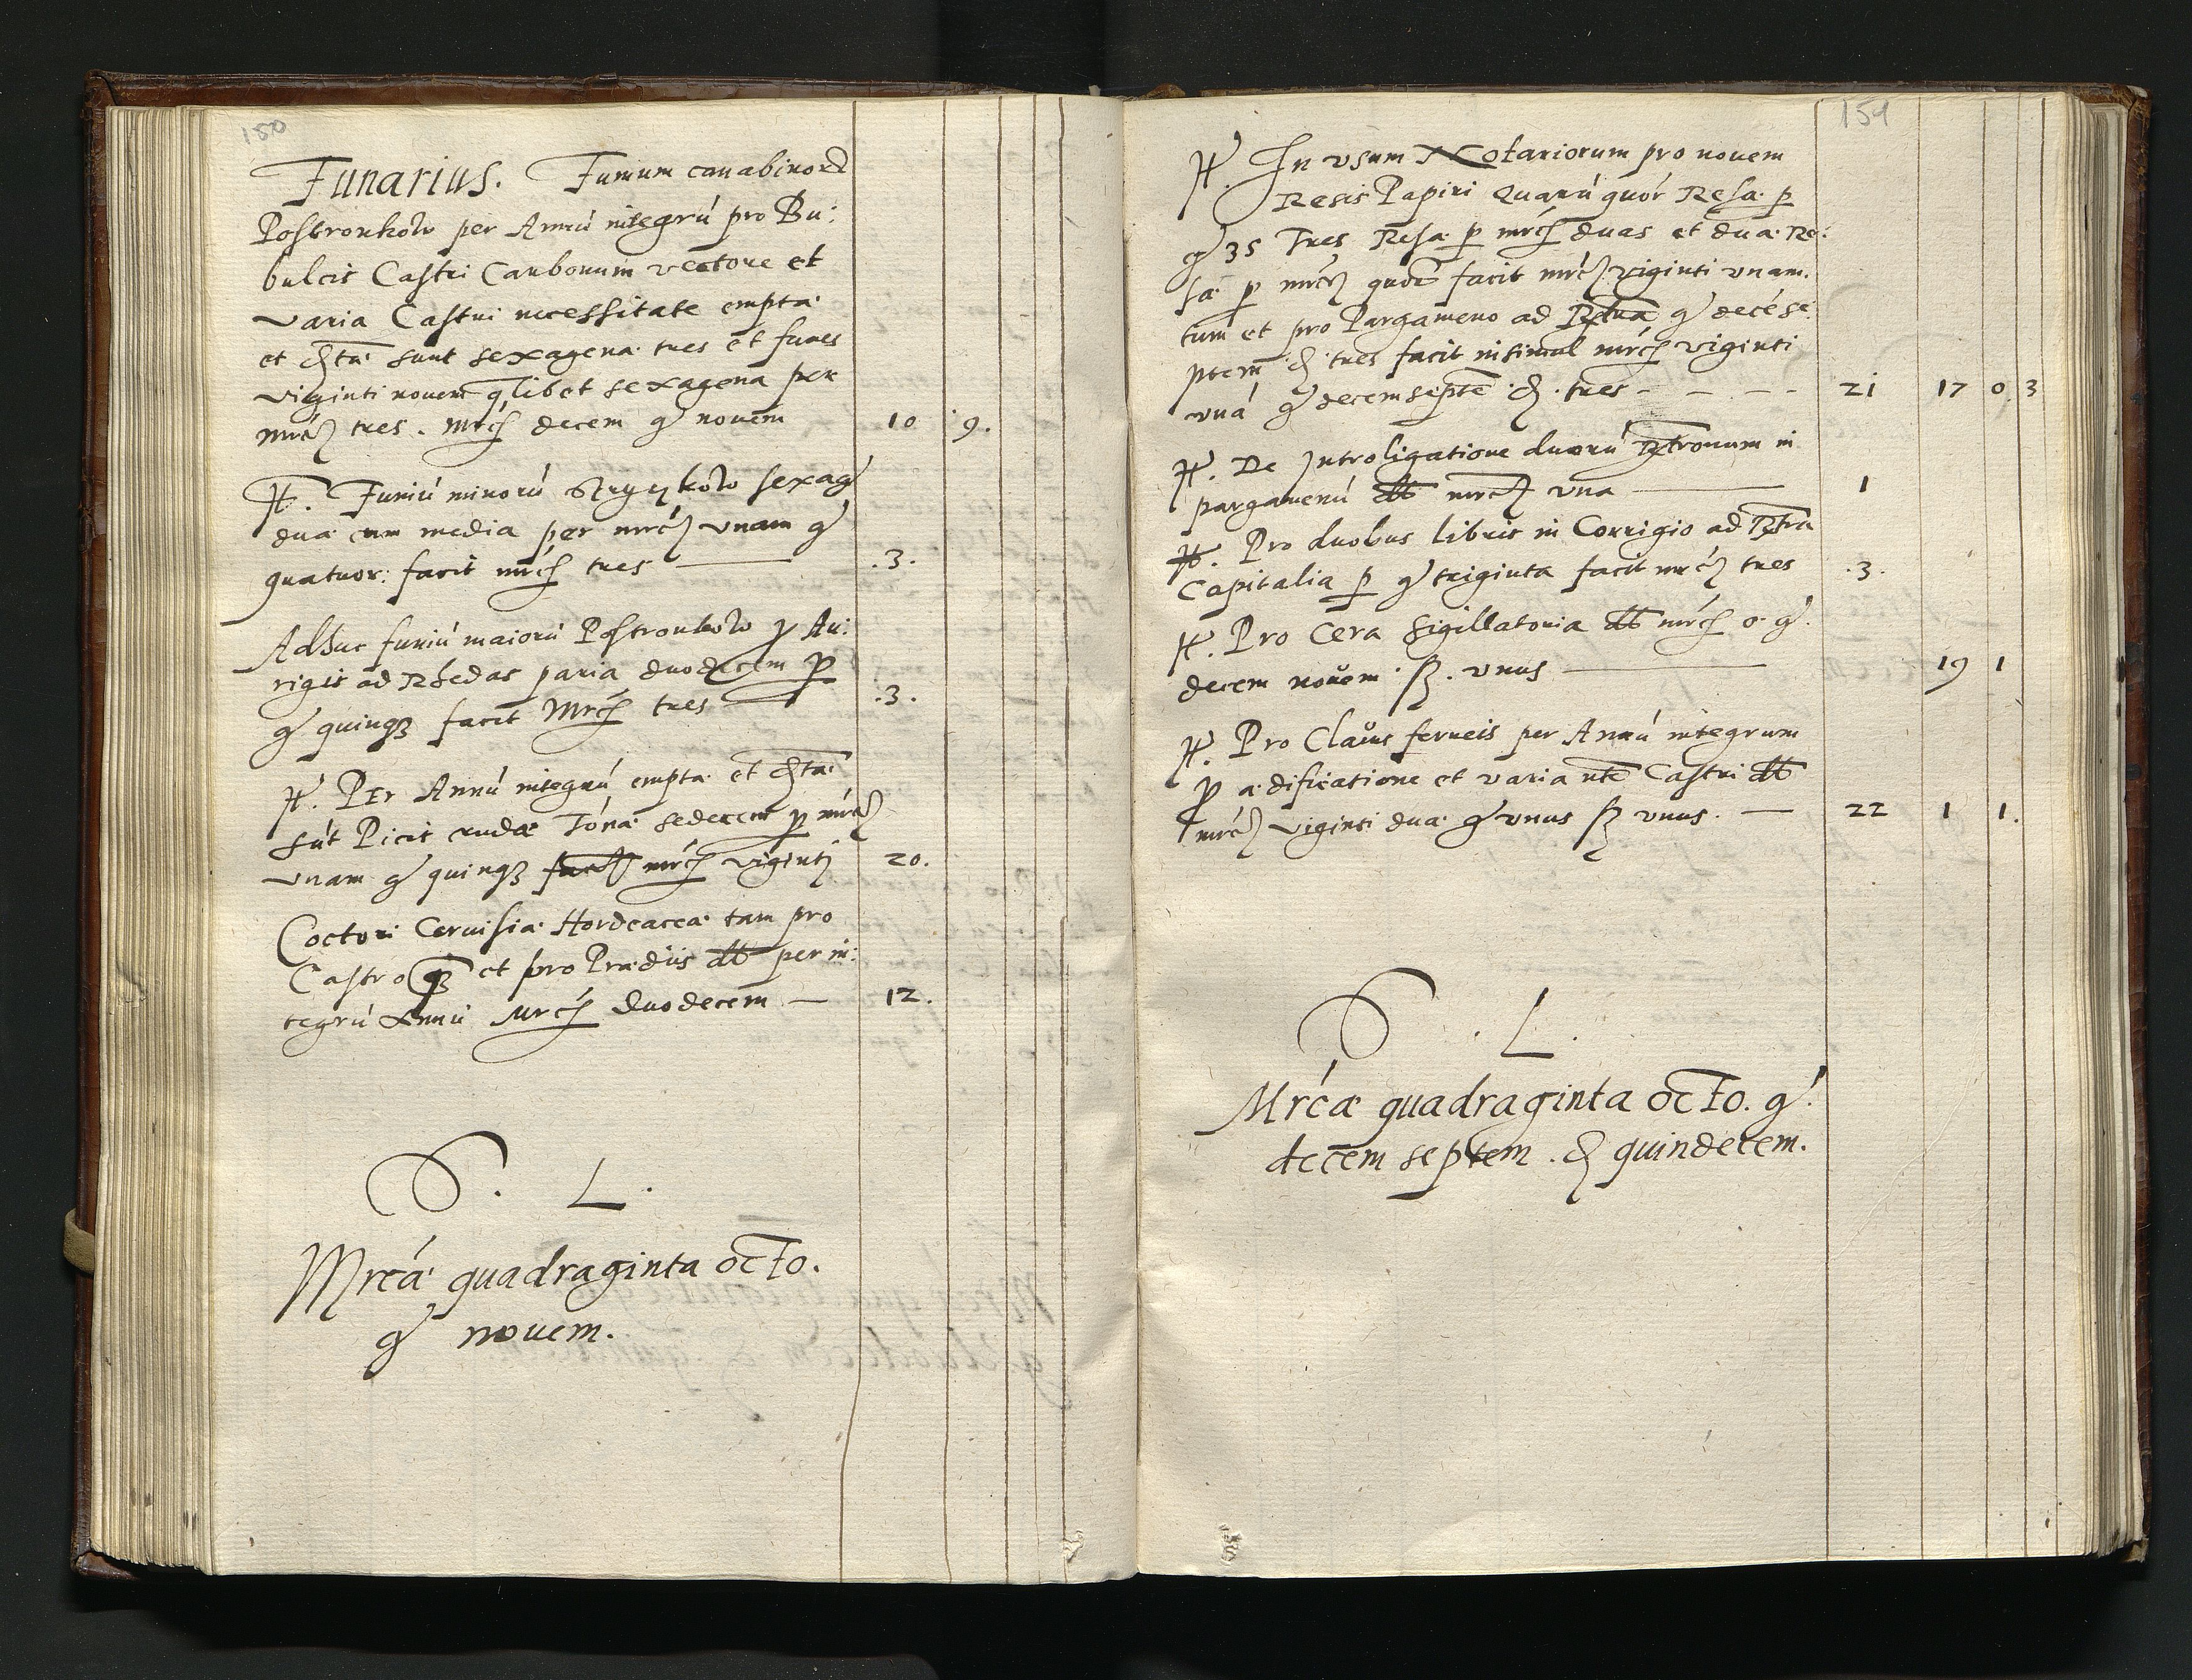 150
Funarius. Funium canabinorū
Postronkow per Annū integrū pro Bu:
bulcis Castri Carbonum vectore et
varia Castri necessitate empta
et dta sunt sexagena tres et funes
viginti novem qlibet sexagena per
mrcs tres. Mrcs decem g novem 10 9.
It. Funiū minorū Stryczkow sexag
dua cum media per mrcs vnam g
quatuor: facit mrcs tres .3.
Adhuc funiū maiorū Postronkow p Au:
rigis ad Rhedas paria duodecem p
g quinq3 facit Mrcs tres .3.
It. Per Annū integrū empta et dta
sūt Picis cruda Tona sedecem p mrcs
vnam g quinq3 facit mrcs viginti 20.
Coctori Cervisia Hordeacea tam pro
Castro q3 et pro Prædiis dt per in:
tegrū Annū Mrcs duodecem — 12.
S. L.
Mrca quadraginta octo.
g novem.
151
It. In vsum Notariorum pro nouem
Resis Papiri Quarū quor Resa p
g 35 Tres Resa p mrcs duas et dua Re:
sa p mrcs quod facit mrcs viginti vnam.
tum et pro Pargameno ad Rtra g decē se
ptem d tres facit insimul mrcs viginti
vnā g decemseptē d. tres - - - - 21 17 0. 3
It. De Introligatione duorū Rtrorum in
pargamenū dt mrcs vna — 1
It. Pro duobus libris in Corrigio ad Rtra
Capitalia p g triginta facit mrcs tres .3.
It. Pro Cera Sigillatoria dt mrcs o. g.
decem novem. ß. vnus — 19 1
It. Pro Clavis ferreis per Annū integrum
p ædificatione et varia ntē Castri dt
mrcs viginti dua g vnus ß vnus. — 22 1 1.
S. L.
Mrca quadraginta octo. g.
decem septem. d quindecem.